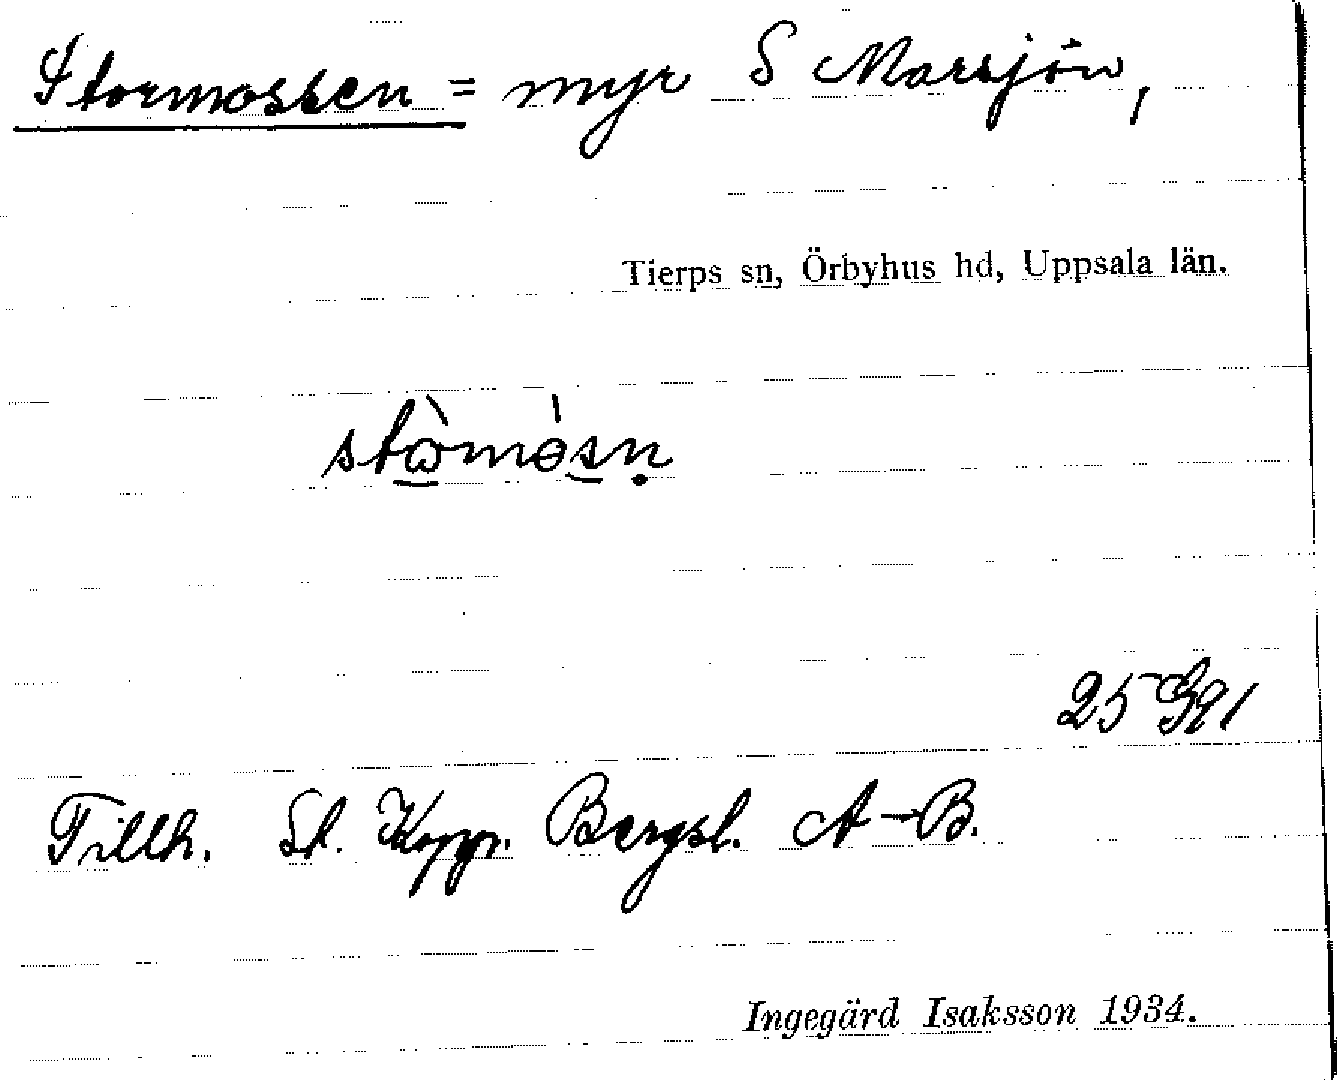 Stormossen = myr S Marsjön,
Tierps sn, Örbyhus hd, Uppsala län.
25 G91
Tillh. St. Koppr. Bergsl. A–B.
Ingegärd Isaksson 1934.